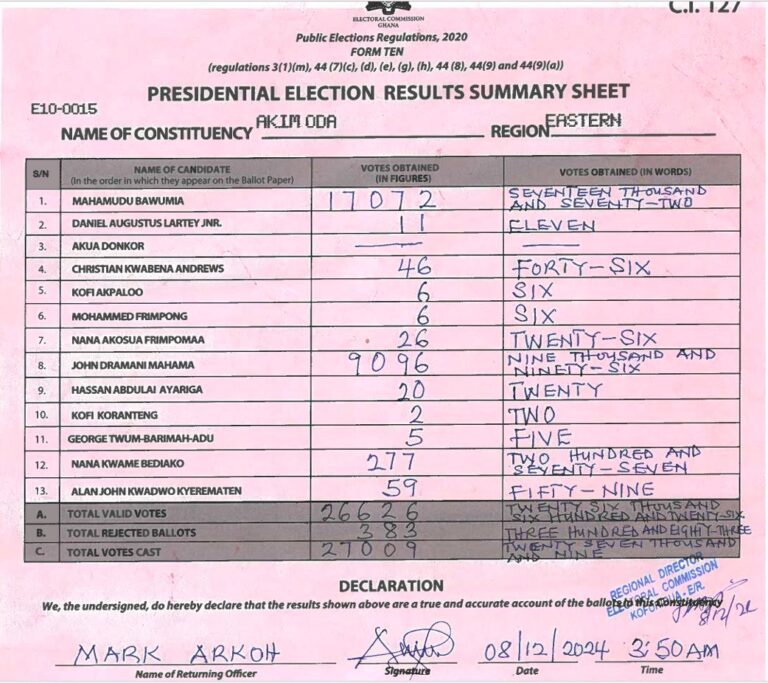 C.I. 127
ELECTORAL COMMISSION
GHANA
Public Elections Regulations, 2020
FORM TEN
(regulations 3(1)(m), 44 (7)(c), (d), (e), (g), (h), 44 (8), 44(9) and 44(9)(a))
PRESIDENTIAL ELECTION RESULTS SUMMARY SHEET
E10-0015
NAME OF CONSTITUENCY AKIM ODA REGION EASTERN
S/N NAME OF CANDIDATE (In the order in which they appear on the Ballot Paper) VOTES OBTAINED (IN FIGURES) VOTES OBTAINED (IN WORDS)
1. MAHAMUDU BAWUMIA 17072 SEVENTEEN THOUSAND AND SEVENTY-TWO
2. DANIEL AUGUSTUS LARTEY JNR. 11 ELEVEN
3. AKUA DONKOR — —
4. CHRISTIAN KWABENA ANDREWS 46 FORTY-SIX
5. KOFI AKPALOO 6 SIX
6. MOHAMMED FRIMPONG 6 SIX
7. NANA AKOSUA FRIMPOMAA 26 TWENTY-SIX
8. JOHN DRAMANI MAHAMA 9096 NINE THOUSAND AND NINETY-SIX
9. HASSAN ABDULAI AYARIGA 20 TWENTY
10. KOFI KORANTENG 2 TWO
11. GEORGE TWUM-BARIMAH-ADU 5 FIVE
12. NANA KWAME BEDIAKO 277 TWO HUNDRED AND SEVENTY-SEVEN
13. ALAN JOHN KWADWO KYEREMATEN 59 FIFTY-NINE
A. TOTAL VALID VOTES 26626 TWENTY SIX THOUSAND SIX HUNDRED AND TWENTY-SIX
B. TOTAL REJECTED BALLOTS 383 THREE HUNDRED AND EIGHTY-THREE
C. TOTAL VOTES CAST 27009 TWENTY SEVEN THOUSAND AND NINE
DECLARATION
REGIONAL DIRECTOR
ELECTORAL COMMISSION
KOFORIDUA-E/R.
We, the undersigned, do hereby declare that the results shown above are a true and accurate account of the ballots in this Constituency
8/12/24
MARK ARKOH 08/12/2024 3:50AM
Name of Returning Officer Signature Date Time